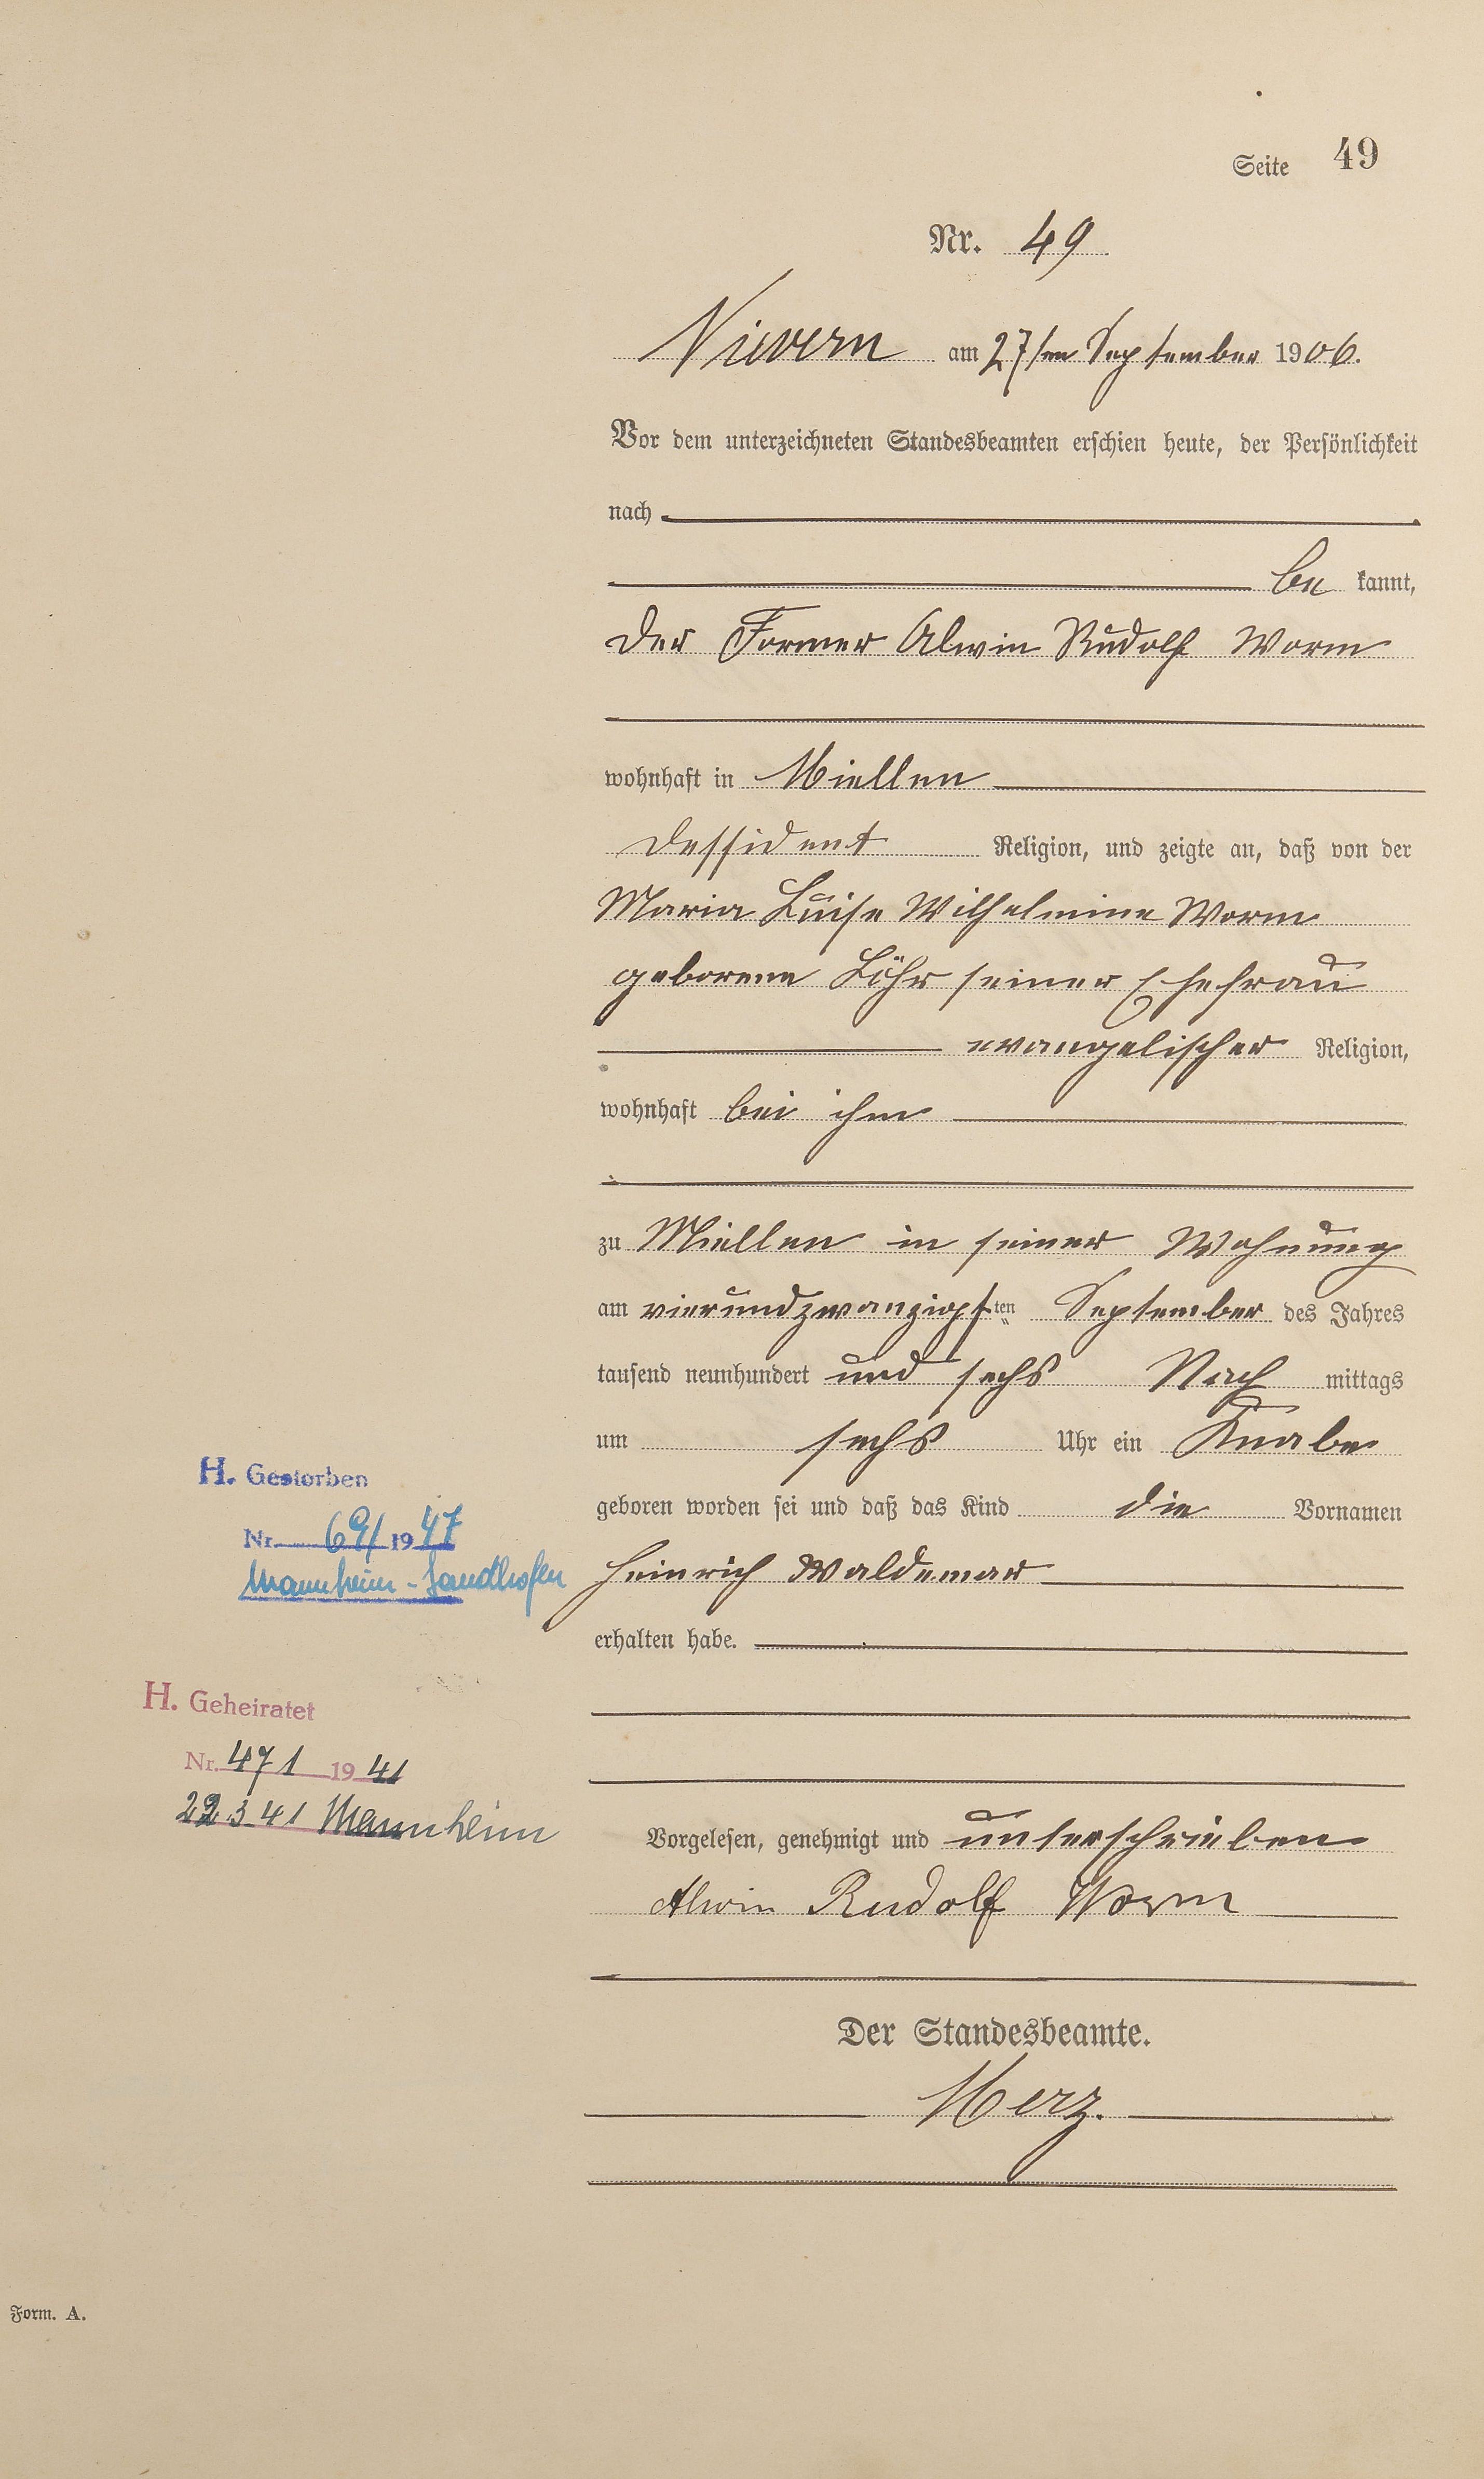 Seite 49
Nr. 49
Nievern am 27ten September 1906.
Vor dem unterzeichneten Standesbeamten erschien heute, der Persönlichkeit
nach
be kannt,
der Former Alwin Rudolf Worm
wohnhaft in Miellen
Dessident Religion, und zeigte an, daß von der
Maria Luise Wilhelmine Worm
geborene Löhr seiner Ehefrau
evangelischer Religion,
wohnhaft bei ihm
zu Miellen in seiner Wohnung
am vierundzwanzigsten September des Jahres
tausend neunhundert und sechs Nach mittags
um sechs Uhr ein Knabe
geboren worden sei und daß das Kind die Vornamen
Heinrich Waldemar
erhalten habe.
H. Gestorben
Nr. 69/ 1947
Mannheim-Sandhofen
H. Geheiratet
Nr. 471 1941
22.3.41 Mannheim
Vorgelesen, genehmigt und unterschrieben
Alwin Rudolf Worm
Der Standesbeamte.
Merz.
Form. A.